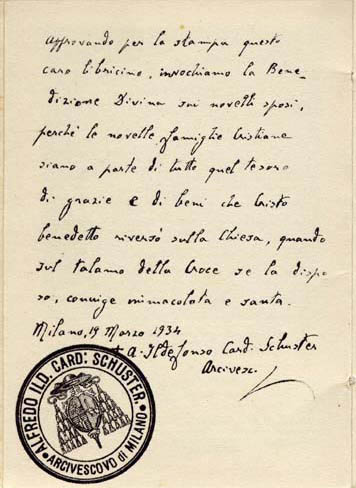 Approvando per la stampa questo
caro libricino, invochiamo la Bene-
dizione Divina sui novelli sposi,
perché le novelle famiglie Cristiane
siano a parte di tutto quel tesoro
di grazie e di beni che Cristo
benedetto riversò sulla Chiesa, quando
sul talamo della Croce se la dispo
sò, coniuge immacolata e santa.
Milano, 19 Marzo 1934
+ A. Ildefonso Card. Schuster
Arcivesc.
ALFREDO ILD. CARD. SCHUSTER.
ARCIVESCOVO di MILANO